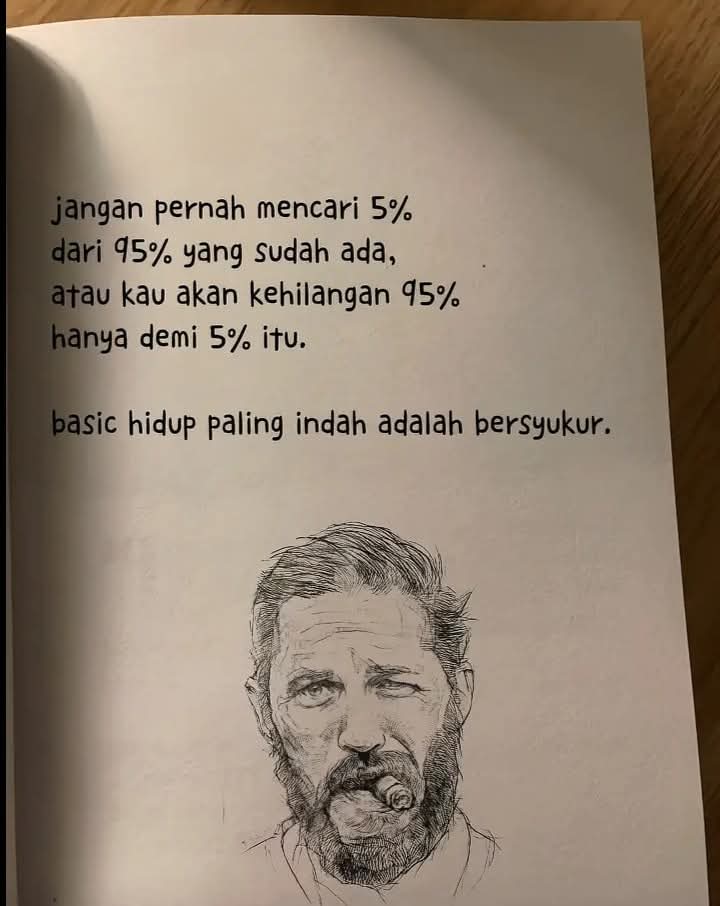 jangan pernah mencari 5%
dari 95% yang sudah ada,
atau kau akan kehilangan 95%
hanya demi 5% itu.
basic hidup paling indah adalah bersyukur.